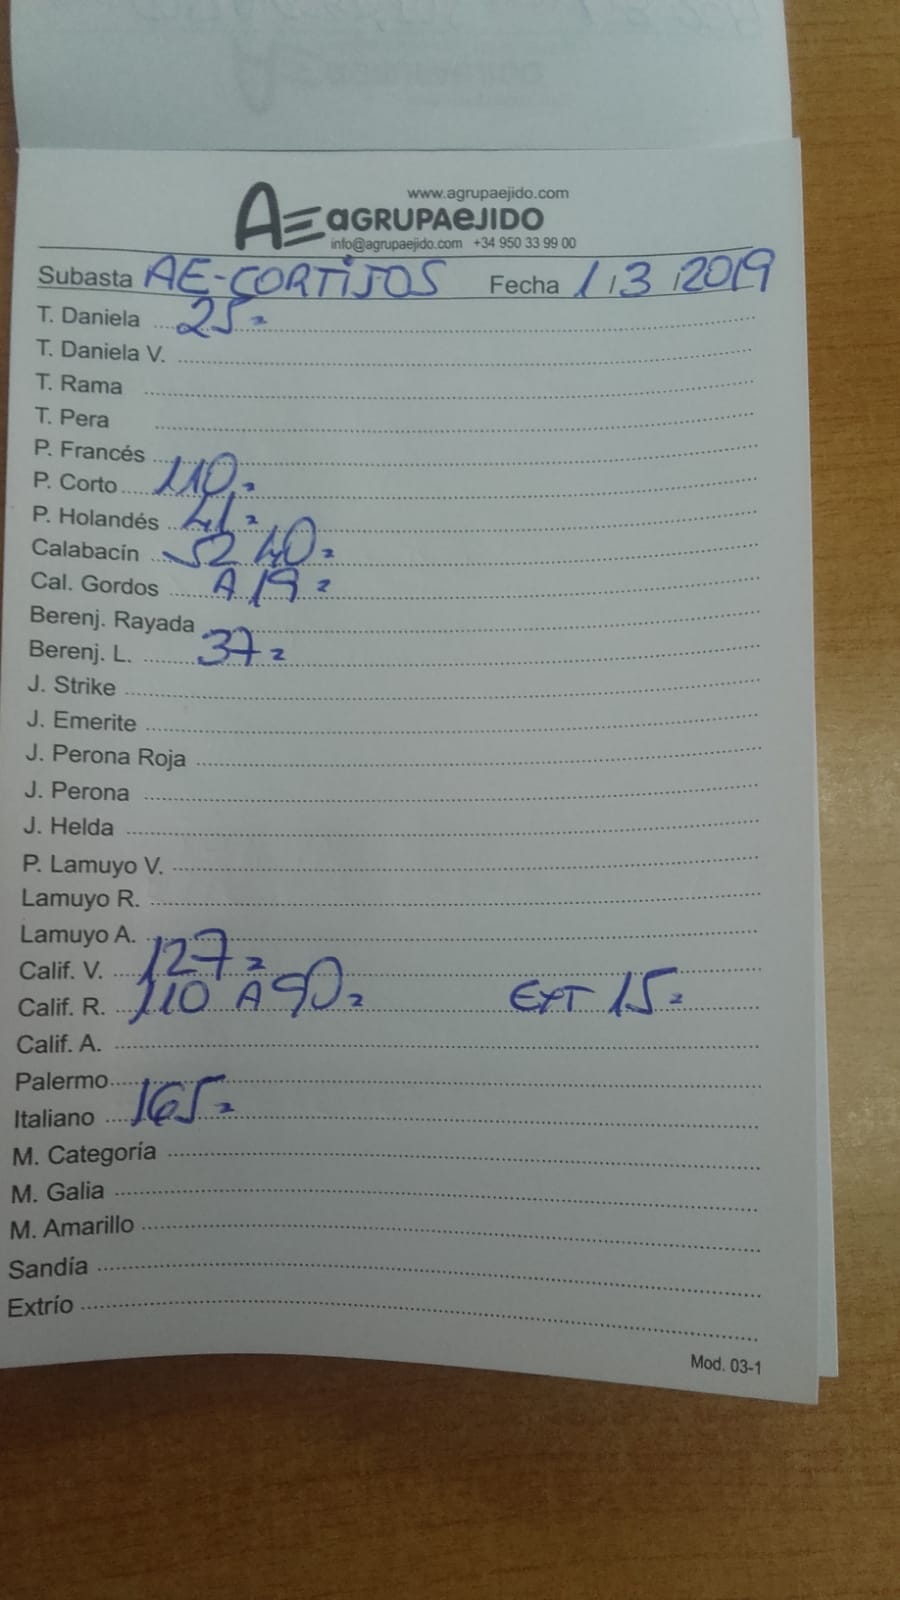 www.agrupaejido.com
AE aGRUPAeJIDO
info@agrupaejido.com +34 950 33 99 00
Subasta AE-CORTIJOS Fecha 1/3/2019
T. Daniela 25-
T. Daniela V.
T. Rama
T. Pera
P. Francés
P. Corto 110-
P. Holandés 41-
Calabacín 52 40-
Cal. Gordos A 19-
Berenj. Rayada
Berenj. L. 37-
J. Strike
J. Emerite
J. Perona Roja
J. Perona
J. Helda
P. Lamuyo V.
Lamuyo R.
Lamuyo A.
Calif. V. 127-
Calif. R. 110 A 90- EXT 15-
Calif. A.
Palermo
Italiano 165-
M. Categoría
M. Galia
M. Amarillo
Sandía
Extrío
Mod. 03-1